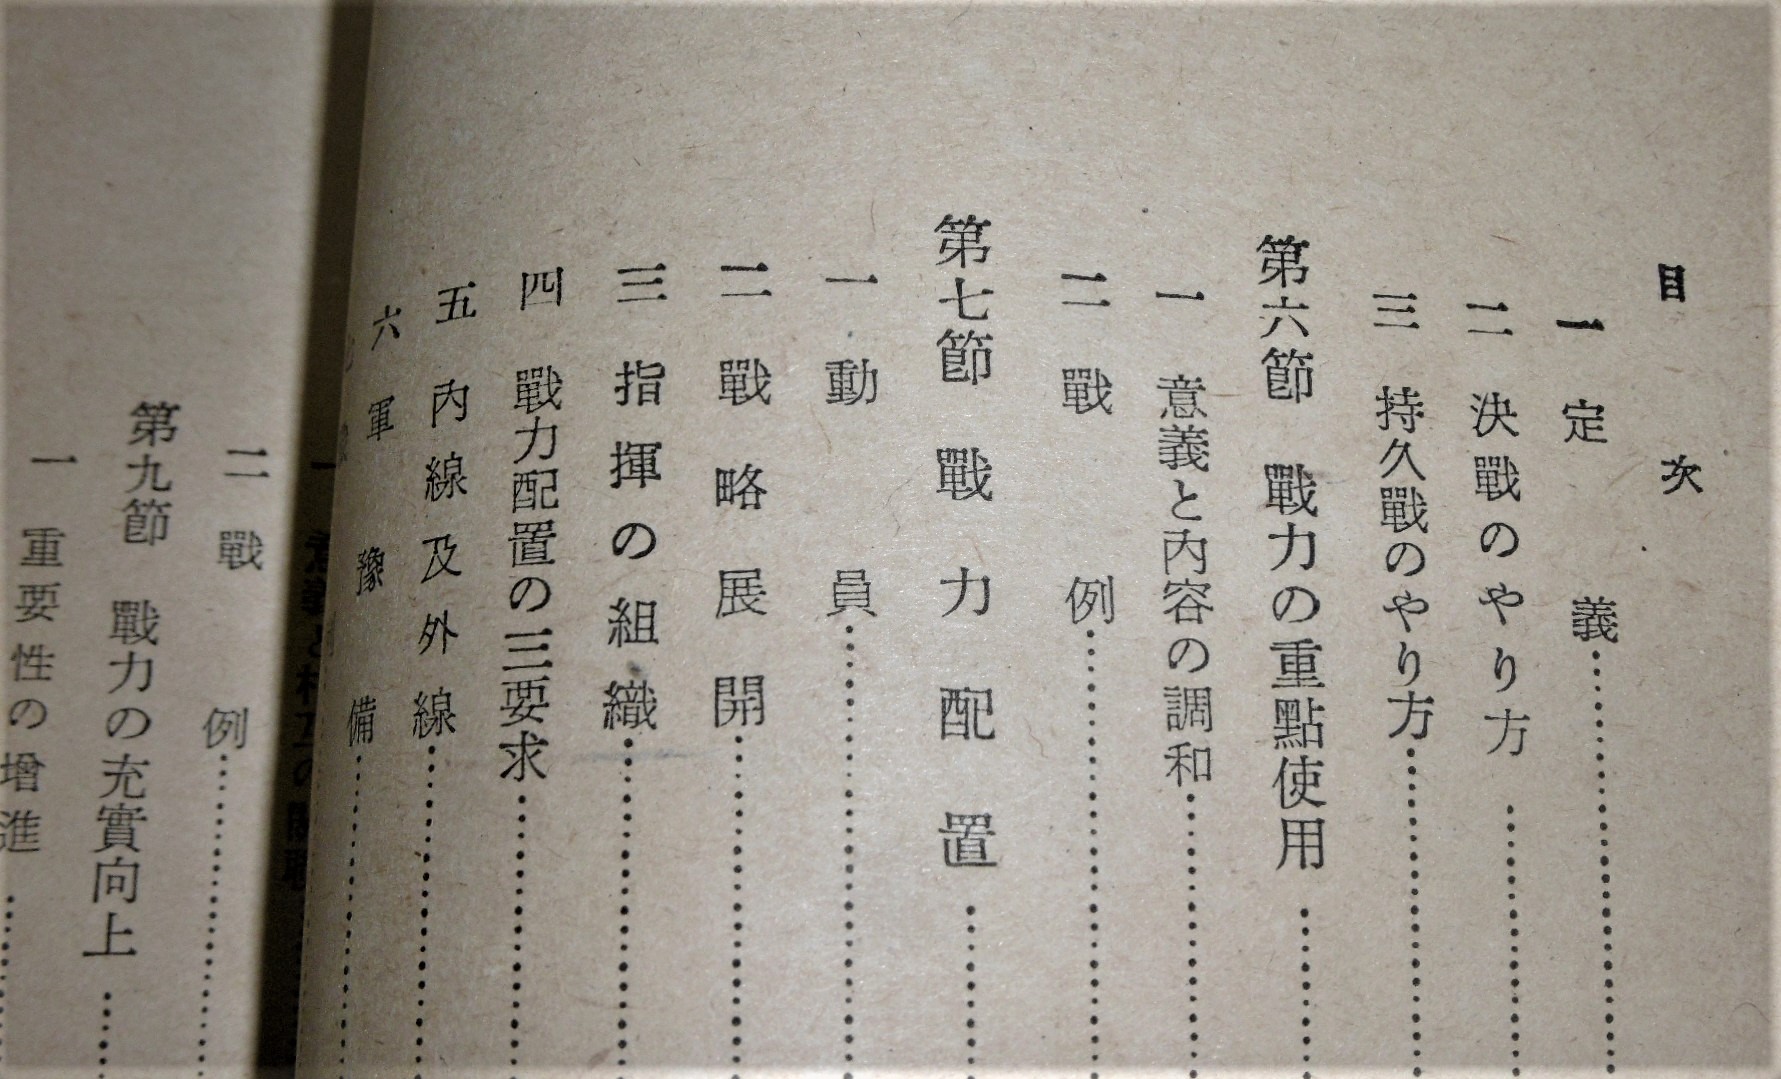 目次
一 定義
二 決戰のやり方
三 持久戰のやり方
第六節 戰力の重點使用
一 意義と內容の調和
二 戰例
第七節 戰力配置
一 動員
二 戰略展開
三 指揮の組織
四 戰力配置の三要求
五 內線及外線
六 軍豫備
二 戰例
第九節 戰力の充實向上
一 重要性の增進